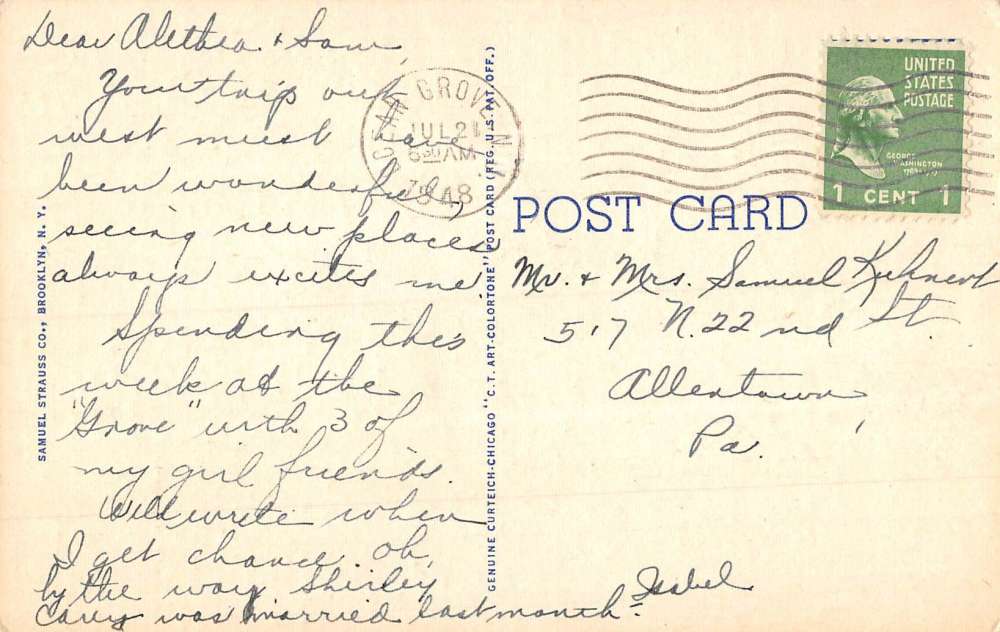 Dear Alethea & Sam,
Your trip out
west must have
been wonderful,
seeing new places
always excites me.
Spending this
week at the
"Grove" with 3 of
my girl friends.
Will write when
I get chance. Oh,
by the way Shirley
Carey was married last month.
Isabel
SAMUEL STRAUSS CO., BROOKLYN, N. Y.
GENUINE CURTEICH-CHICAGO "C.T. ART-COLORTONE" POST CARD (REG. U.S. PAT. OFF.)
OCEAN GROVE N.J.
JUL 21
630 AM
1948
UNITED
STATES
POSTAGE
GEORGE
WASHINGTON
1 CENT 1
POST CARD
Mr. & Mrs. Samuel Kuhnert
517 N. 22nd St
Allentown,
Pa.